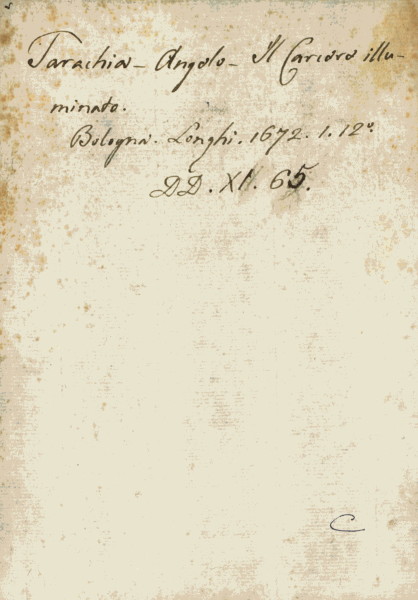 Tarachia - Angelo - Il Carcere illu-
minato.
Bologna. Longhi. 1672. 1. 12º.
DD. XI. 65.
C